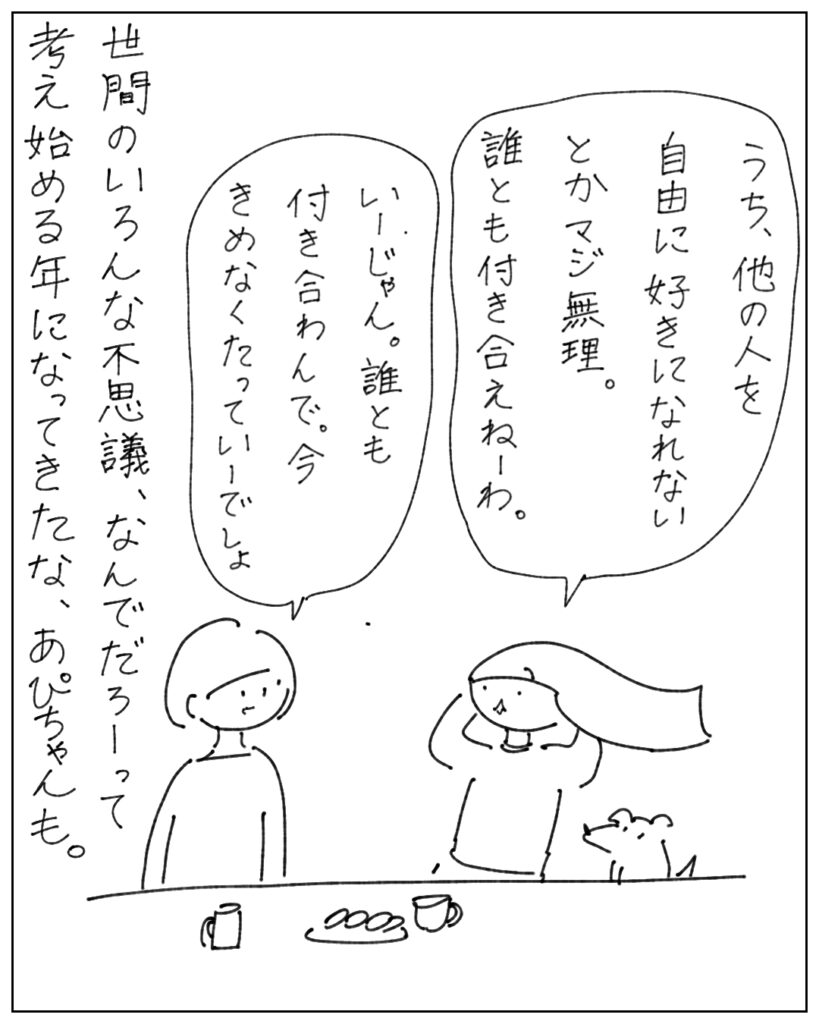 うち、他の人を
自由に好きになれない
とかマジ無理。
誰とも付き合えねーわ。
いーじゃん。誰とも
付き合わんで。今
きめなくたっていーでしょ
世間のいろんな不思議、なんでだろーって
考え始める年になってきたな、あぴちゃんも。